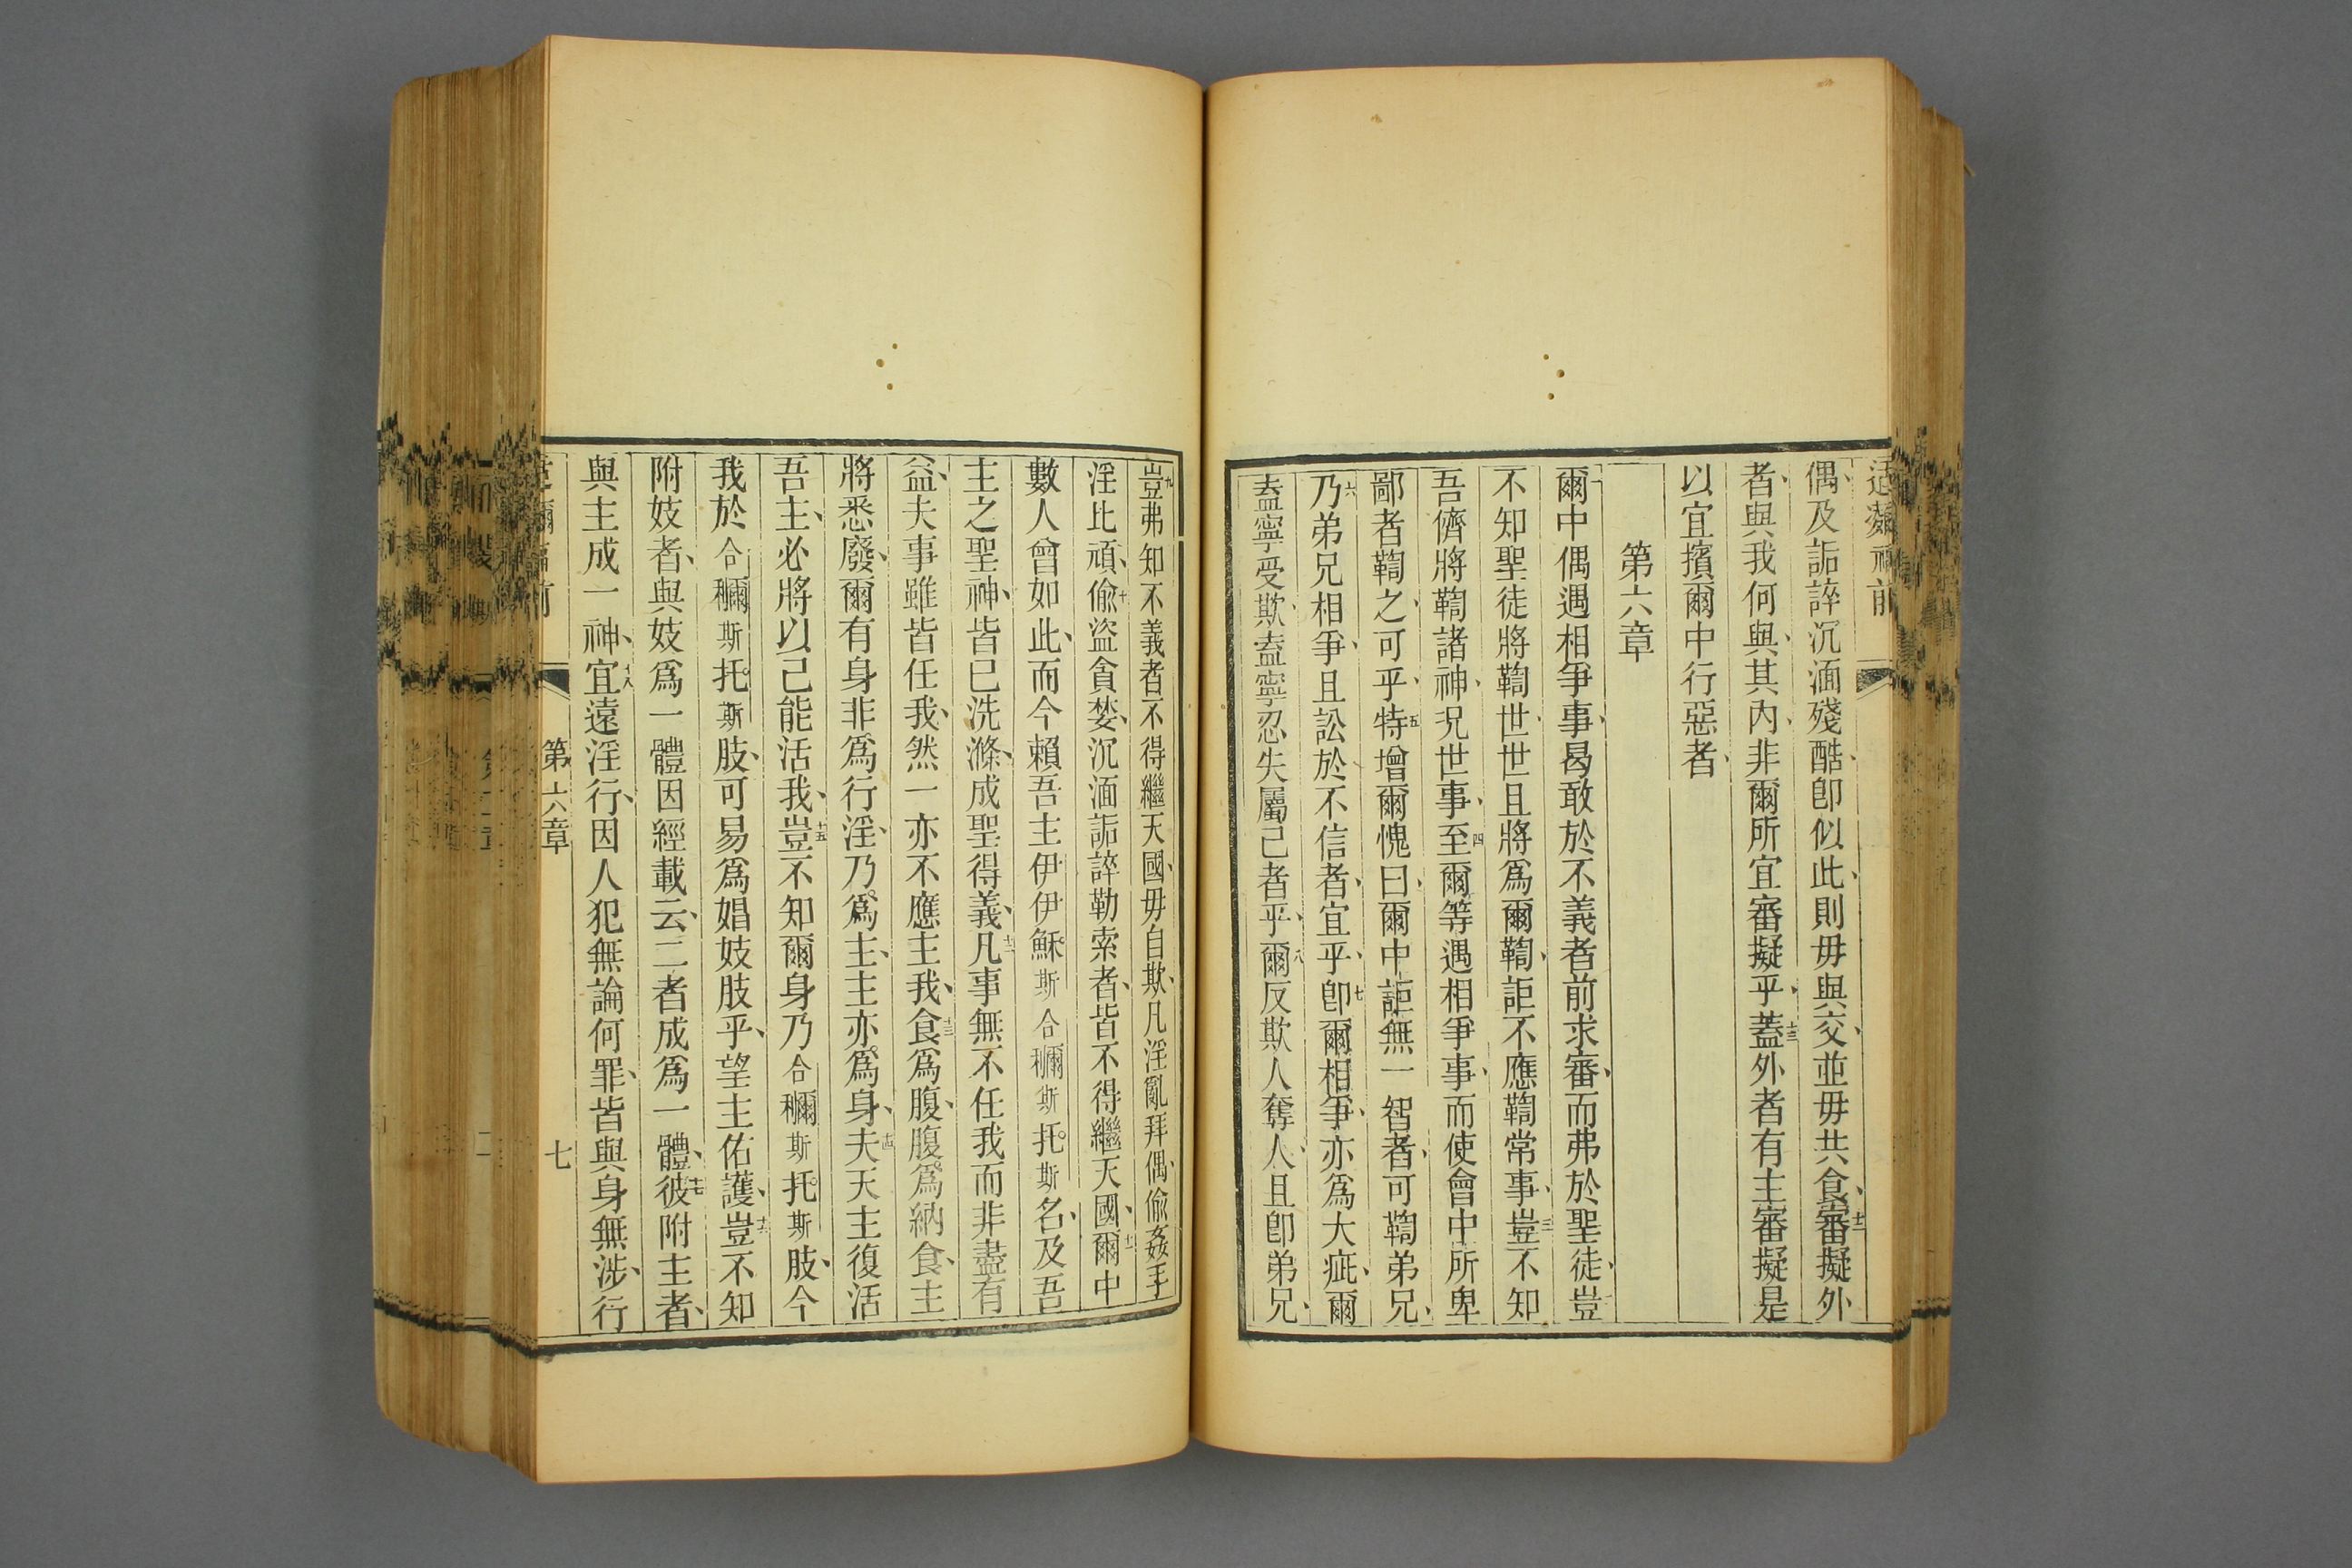 偶、及詬誶沉湎殘酷、卽似此、則毋與交、並毋共食、十二審擬外
者、與我何與、其內、非爾所宜審擬乎、十三蓋外者有主審擬、是
以宜擯爾中行惡者、
第六章
一爾中偶遇相爭事、曷敢於不義者前求審、而弗於聖徒、二豈
不知聖徒將鞫世、世且將爲爾鞫、詎不應鞫常事、三豈不知
吾儕將鞫諸神、況世事、四至爾等遇相爭事、而使會中所卑
鄙者鞫之、可乎、五特增爾愧曰、爾中詎無一智者、可鞫弟兄、
六乃弟兄相爭、且訟於不信者、宜乎、七卽爾相爭、亦爲大疵、爾
盍寧受欺、盍寧忍失屬己者乎、八爾反欺人奪人、且卽弟兄、
九豈弗知不義者不得繼天國、毋自欺、凡淫亂拜偶偷姦手
淫比頑、十偸盜貪婪、沉湎詬誶勒索者、皆不得繼天國、十一爾中
數人曾如此、而今賴吾主伊伊穌斯合穪斯托斯名、及吾
主之聖神、皆已洗滌、成聖得義、十二凡事無不任我、而非盡有
益、夫事雖皆任我、然一亦不應主我、十三食爲腹、腹爲納食、主
將悉廢、爾有身非爲行淫、乃爲主、主亦爲身、十四夫天主復活
吾主、必將以己能活我、十五豈不知爾身乃合穪斯托斯肢、今
我於合穪斯托斯肢、可易爲娼妓肢乎、望主佑護、十六豈不知
附妓者、與妓爲一體、因經載云、二者成爲一體、十七彼附主者、
與主成一神、十八宜遠淫行、因人犯無論何罪、皆與身無涉、行
第六章
七